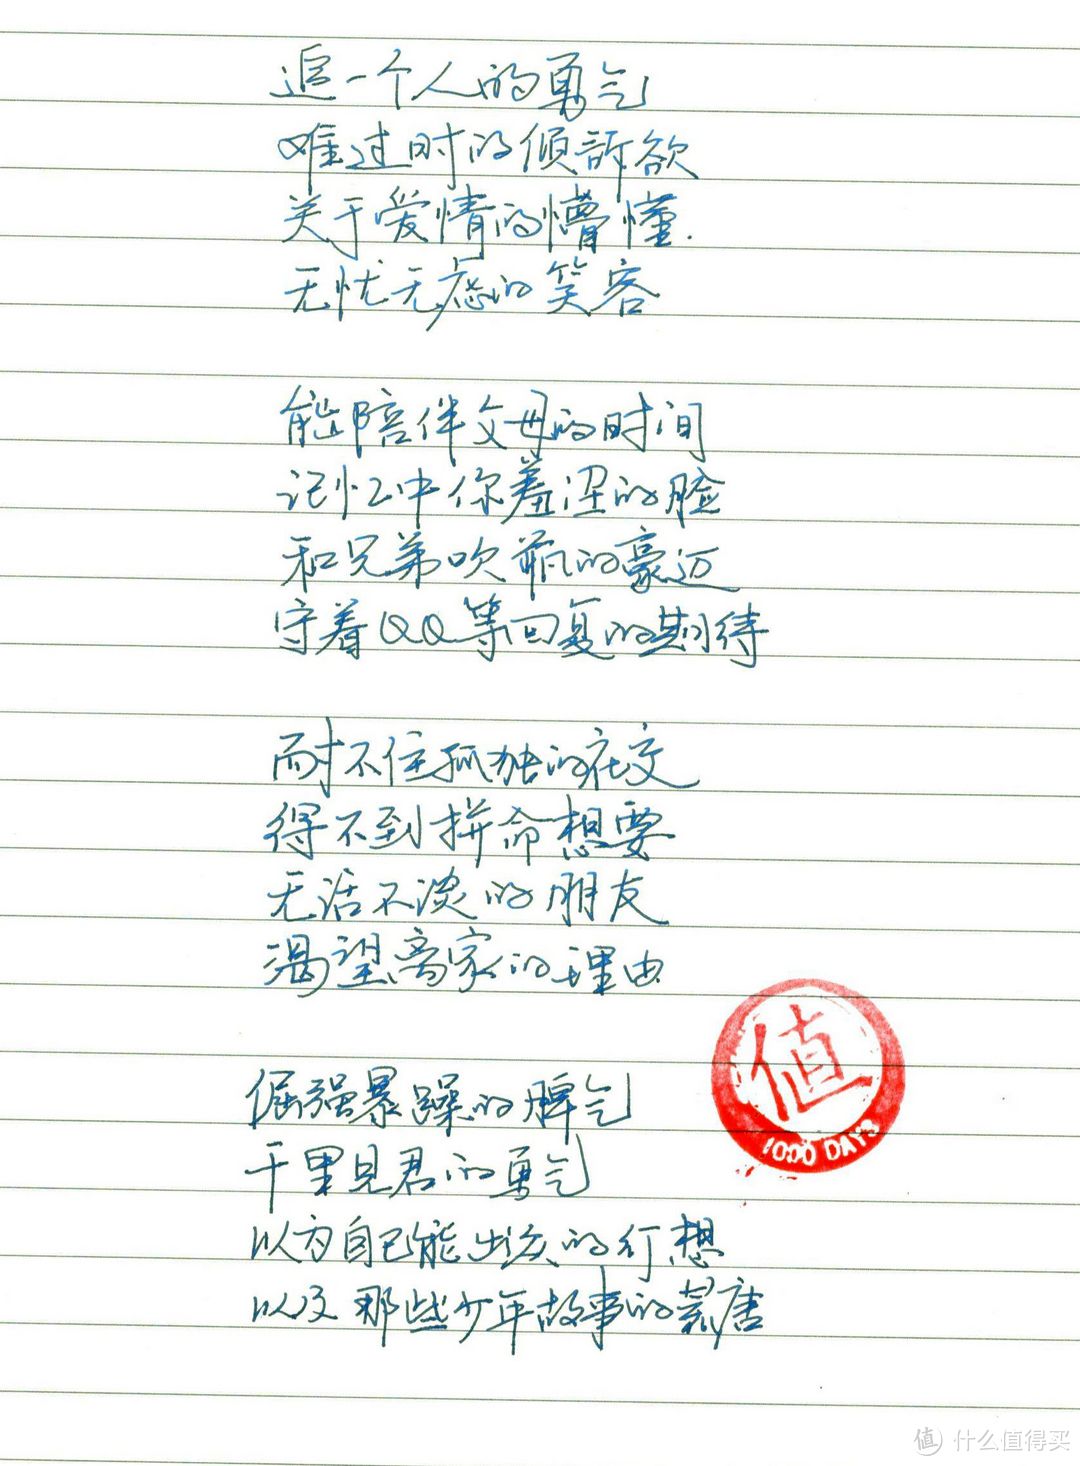 追一个人的勇气
难过时的倾訴欲
关于爱情的懵懂.
无忧无虑的笑容
能陪伴父母的时间
记忆中你羞涩的脸
和兄弟吹瓶的豪迈
守着QQ等回复的期待
耐不住孤独的社交
得不到拼命想要
无话不谈的朋友
渴望离家的理由
倔强暴躁的脾气
千里见君的勇气
以为自己能出众的幻想
以及那些少年故事的荒唐
值
1000 DAYS
值 什么值得买